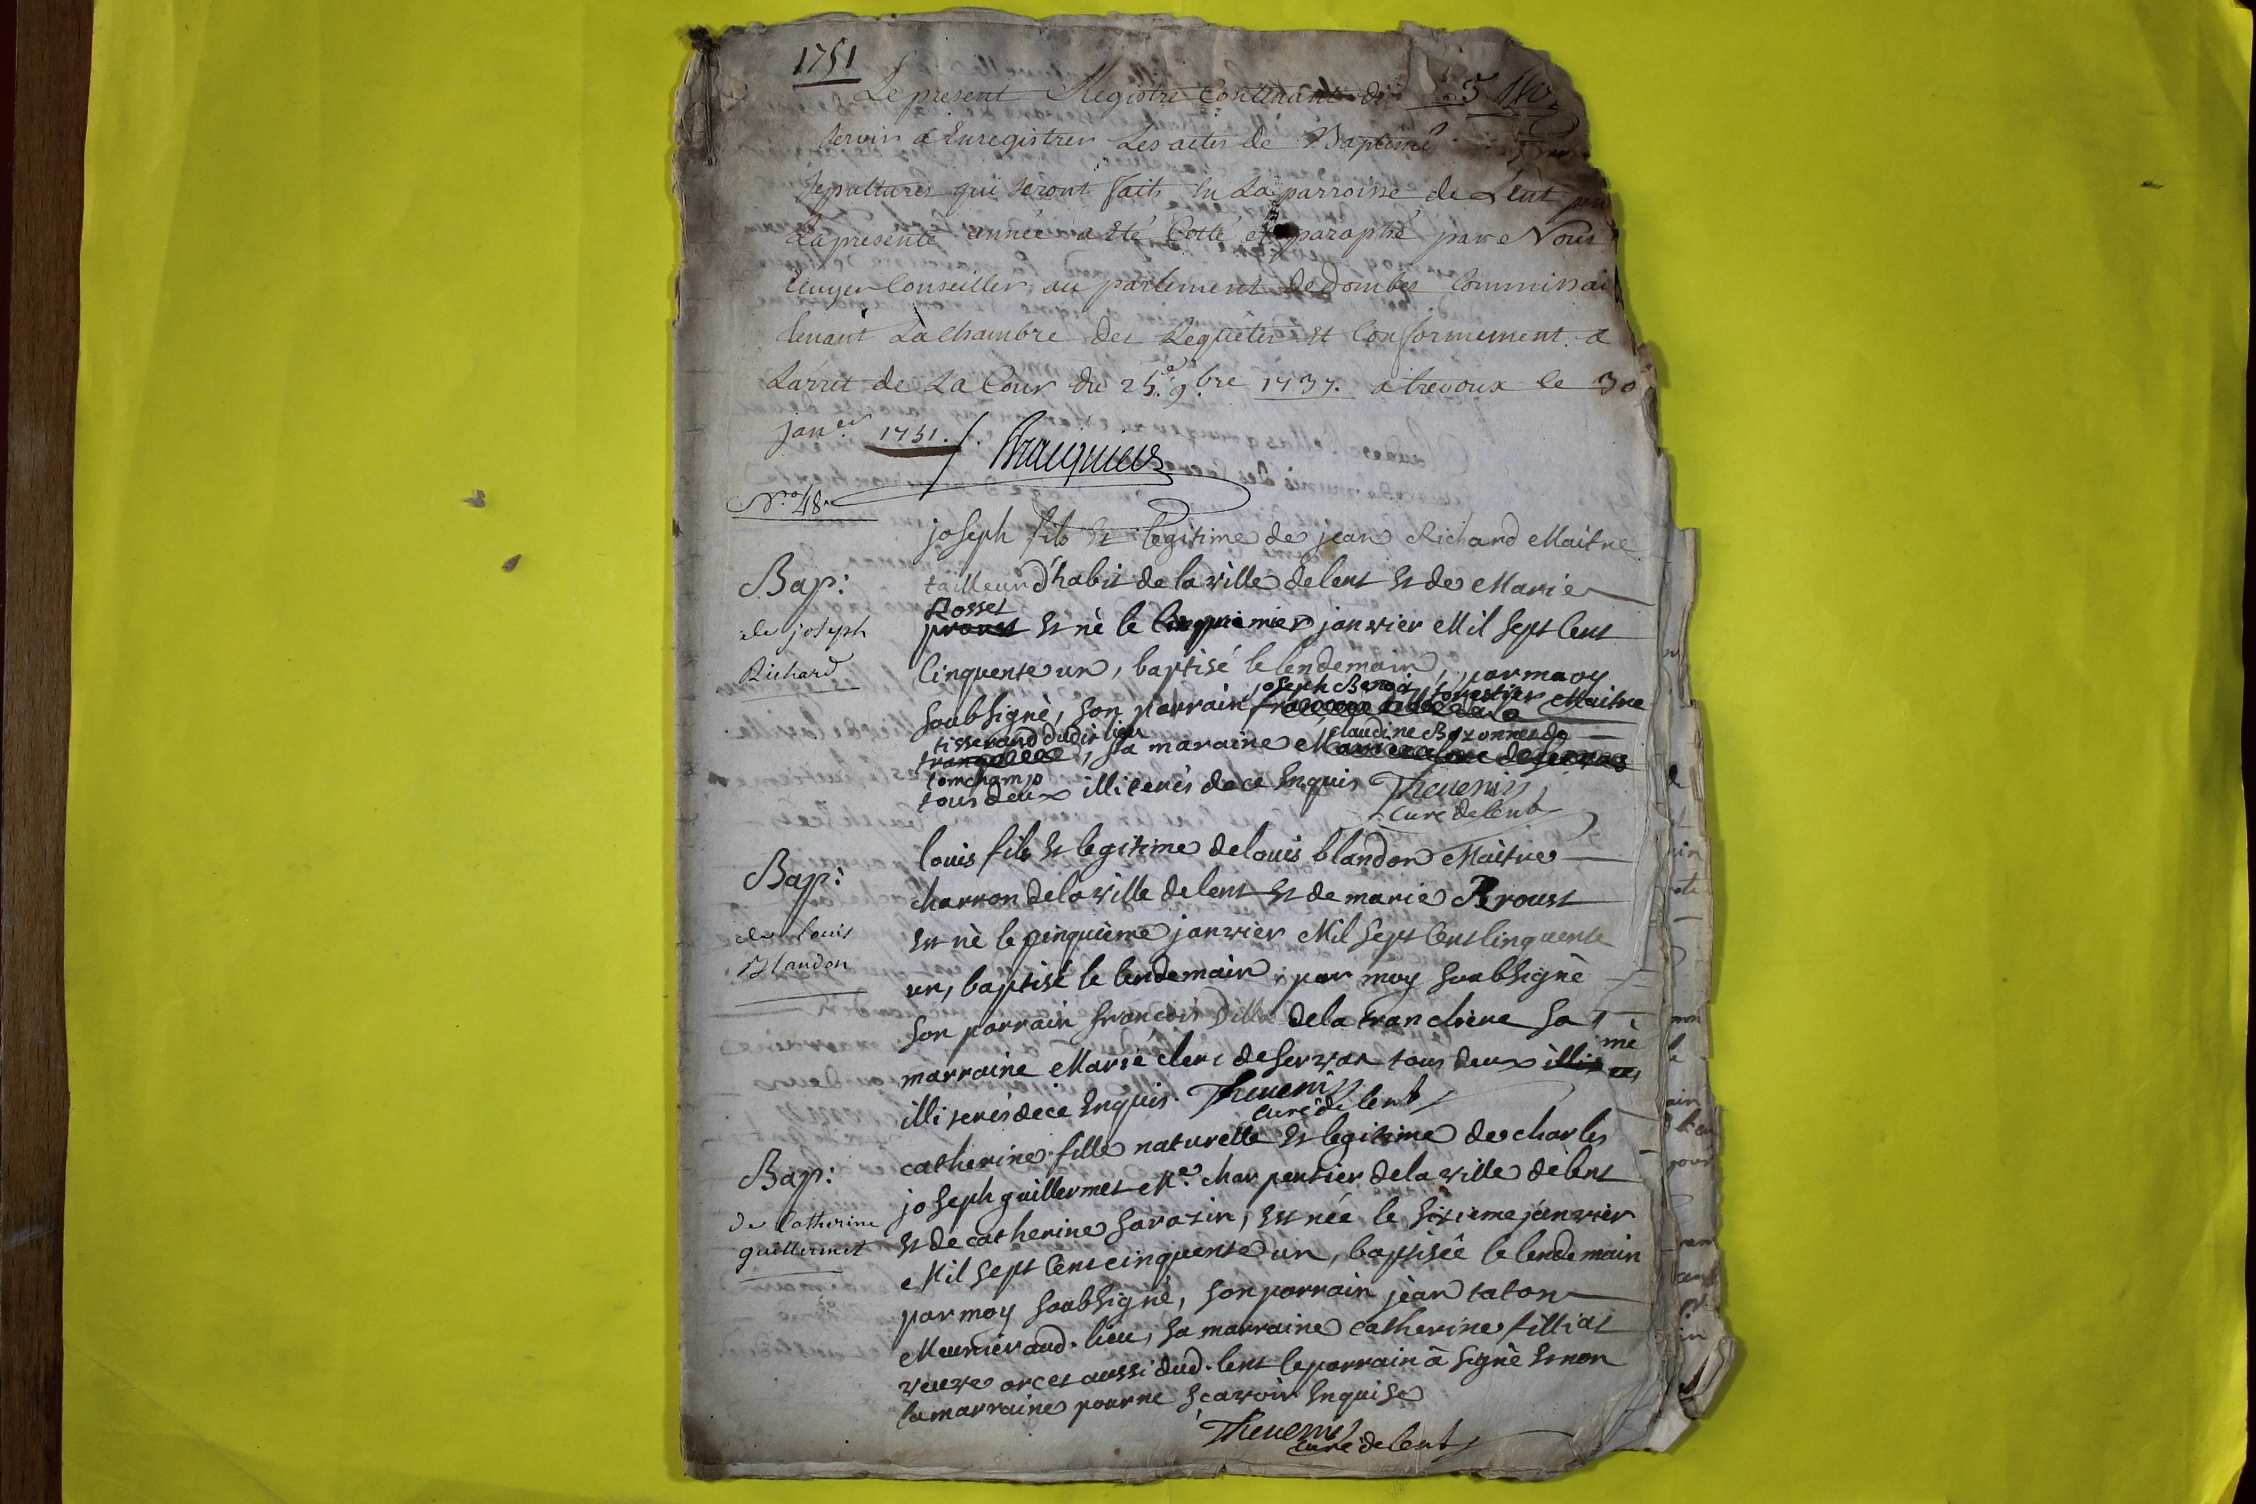 1751
Le present Registre Contenant
servir a Enregistrer Les actes de Baptême
sepultures qui seront faits En La parroisse de Lent pen
La presente année a eté Cotté et paraphé par Nous
Ecuyer Conseiller au parlement de dombes Commissai
tenant La Chambre des Requetes et Conformement a
Larret de La Cour du 25.e 9.bre 1737. a trevoux le 30
jan.er 1751.
N.o 48
joseph fils et legitime de jean Richard Maitre
Bap:
de joseph
Richard
tailleur d'habit de la ville de lent et de Marie
Rosset
est né le premier janvier Mil sept Cent
Cinquente un, baptisé le lendemain, par moy
joseph Benoit forrestier Maitre
soubsigné, son parrain
tisserand dudit lieu claudine Bozonnet de
, sa maraine
tomchamp
tous deux illiterés de ce Enquis Thevenin
curé de lent
Bap:
de louis
Blandon
louis fils et legitime de louis blandon Maitre
charron de la ville de lent et de marie Broust
est né le cinquième janvier Mil sept Cent Cinquente
un, baptisé le lendemain, par moy soubsigné
son parrain françois de la tranclière sa
marraine Marie clerc de servas tous deux
illiterés de ce Enquis. Thevenin
curé de lent
Bap:
de Catherine
guillermet
catherine fille naturelle et legitime de charles
joseph guillermet M.e charpentier de la ville de lent
et de catherine sarasin, est née le sixieme janvier
Mil sept Cent cinquente un, baptisée le lendemain
par moy soubsigné, son parrain jean taton
Meunier aud. lieu, sa marraine catherine filliat
veuve orcet aussi dud. lent le parrain a signé et non
la marraine pour ne scavoir Enquise
Thevenin
curé de lent